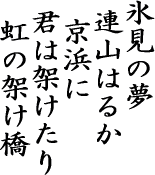 氷見の夢
連山はるか
京浜に
君は架けたり
虹の架け橋